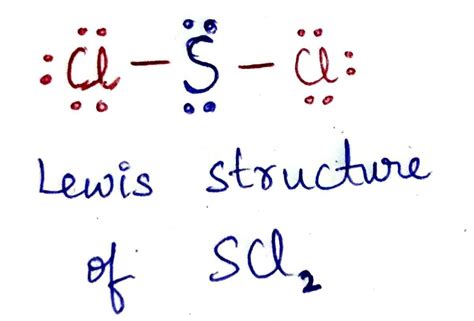 :Cl — S — Cl:
Lewis structure
of SCl₂